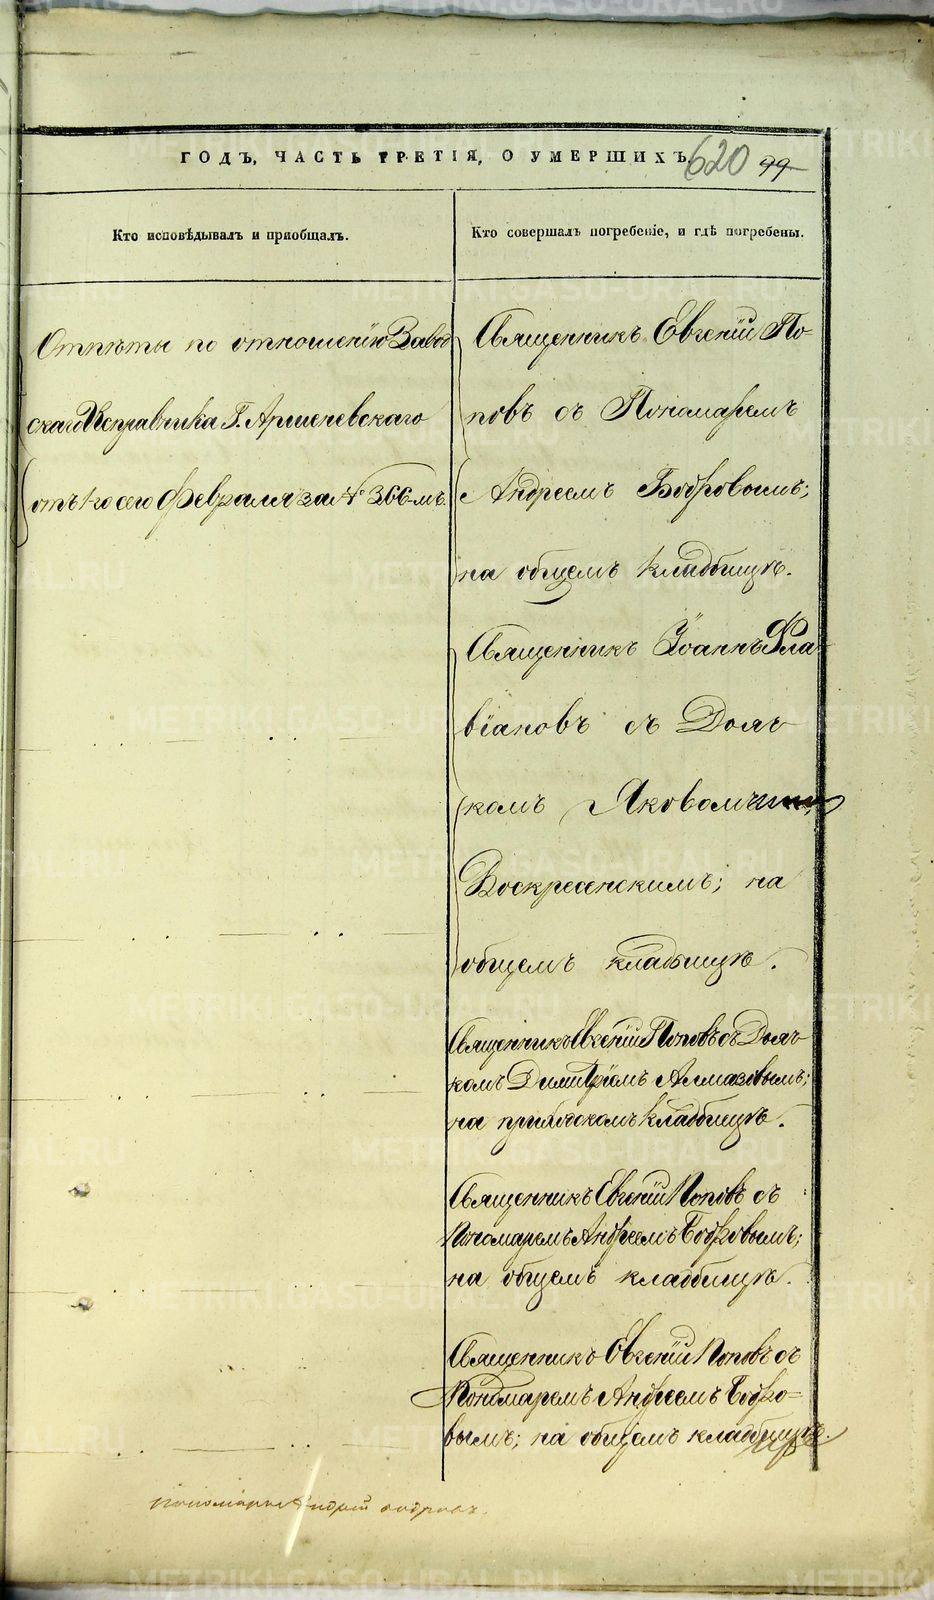 ГОДЪ, ЧАСТЬ ТРЕТІЯ, О УМЕРШИХЪ. 620 99
Кто исповѣдывалъ и пріобщалъ.
Кто совершалъ погребеніе, и гдѣ погребены.
Отпѣты по отношенію Завод
скаго Исправника Г. Аршеневскаго
отъ 1го сего Февраля за № 366-мъ.
Священникъ Евгеній По-
повъ съ Пономаремъ
Андреемъ Бобровымъ;
на общемъ кладбищѣ.
Священникъ Іоаннъ Фла
віановъ съ Дьяч
комъ Яковомъ
Воскресенскимъ; на
общемъ кладбищѣ.
Священникъ Евгеній Поповъ съ Дьяч
комъ Димитріемъ Алмазовымъ;
на приписномъ кладбищѣ.
Священникъ Евгеній Поповъ съ
Пономаремъ Андреемъ Бобровымъ;
на общемъ кладбищѣ.
Священникъ Евгеній Поповъ съ
Пономаремъ Андреемъ Бобро-
вымъ; на общемъ кладбищѣ.
пономарь Андрей Бобровъ.
METRIKI.GASO-URAL.RU